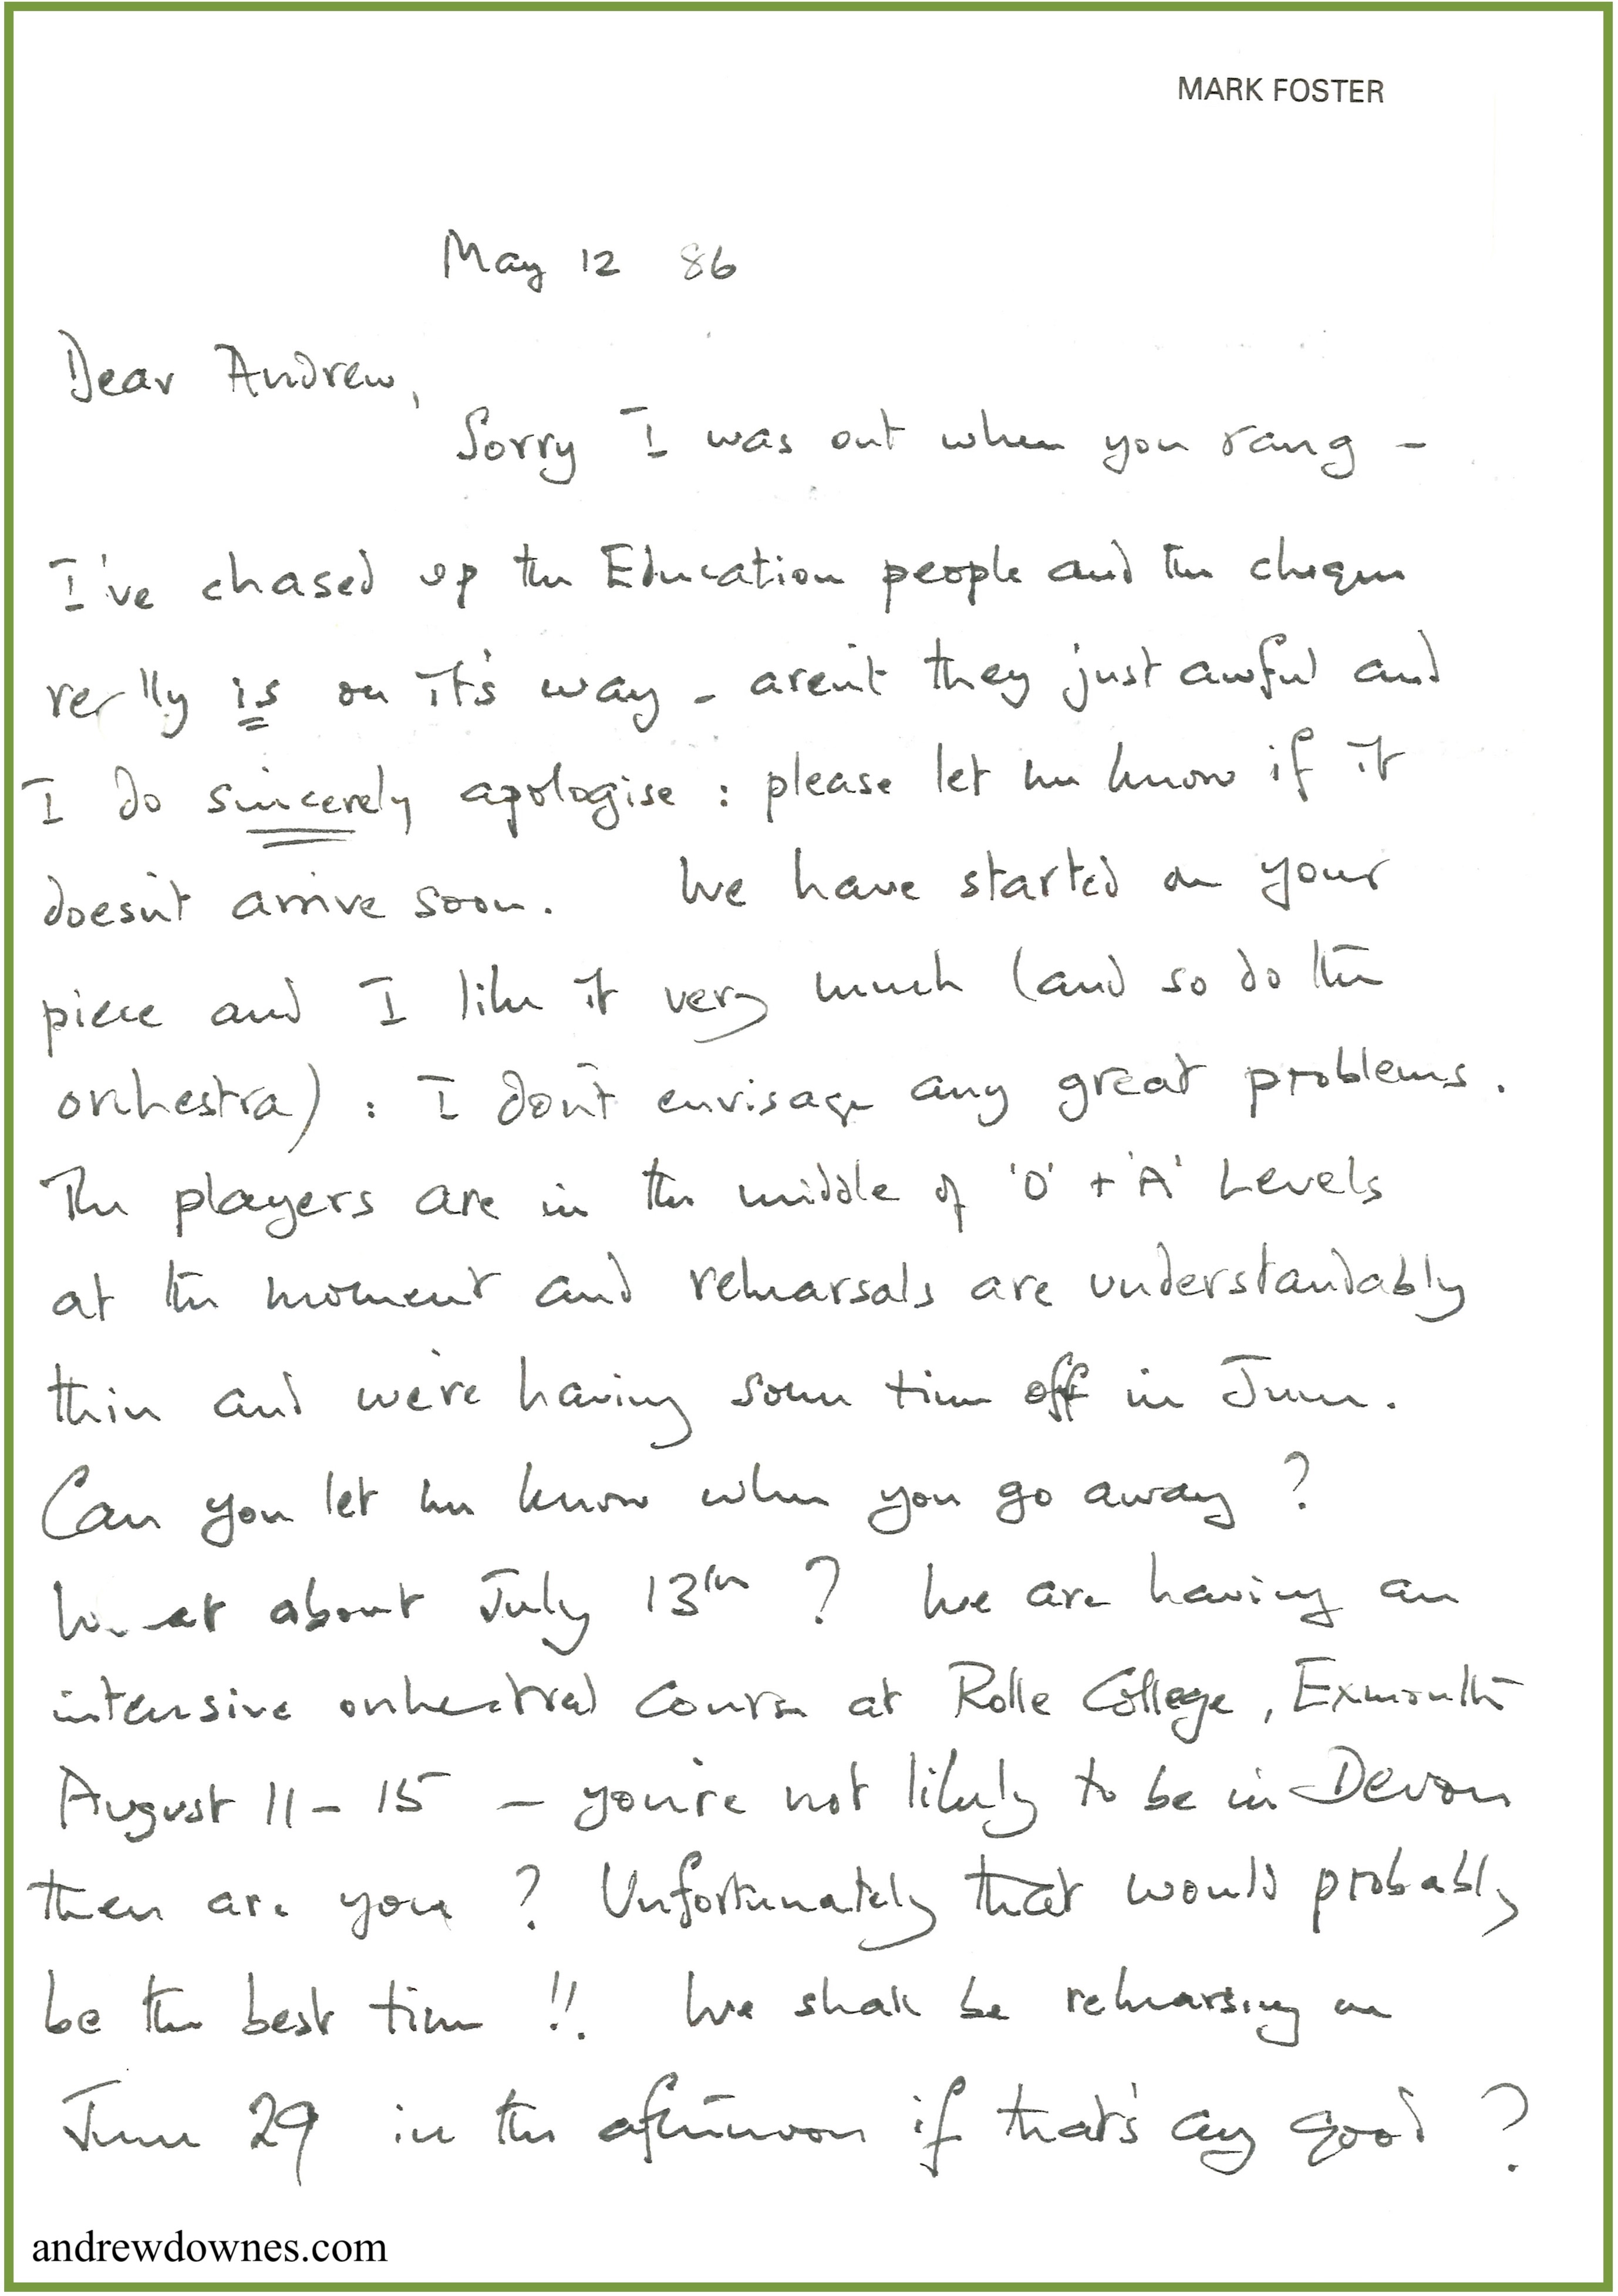 MARK FOSTER
May 12 86
Dear Andrew,
Sorry I was out when you rang -
I've chased up the Education people and the cheque
really is on it's way - aren't they just awful and
I do sincerely apologise : please let me know if it
doesn't arrive soon. We have started on your
piece and I like it very much (and so do the
orchestra) : I don't envisage any great problems.
The players are in the middle of 'O' + 'A' Levels
at the moment and rehearsals are understandably
thin and we're having some time off in June.
Can you let me know when you go away ?
What about July 13th ? We are having an
intensive orchestral course at Rolle College, Exmouth
August 11 - 15 - you're not likely to be in Devon
then are you ? Unfortunately that would probably
be the best time !! We shall be rehearsing on
June 29 in the afternoon if that's any good ?
andrewdownes.com